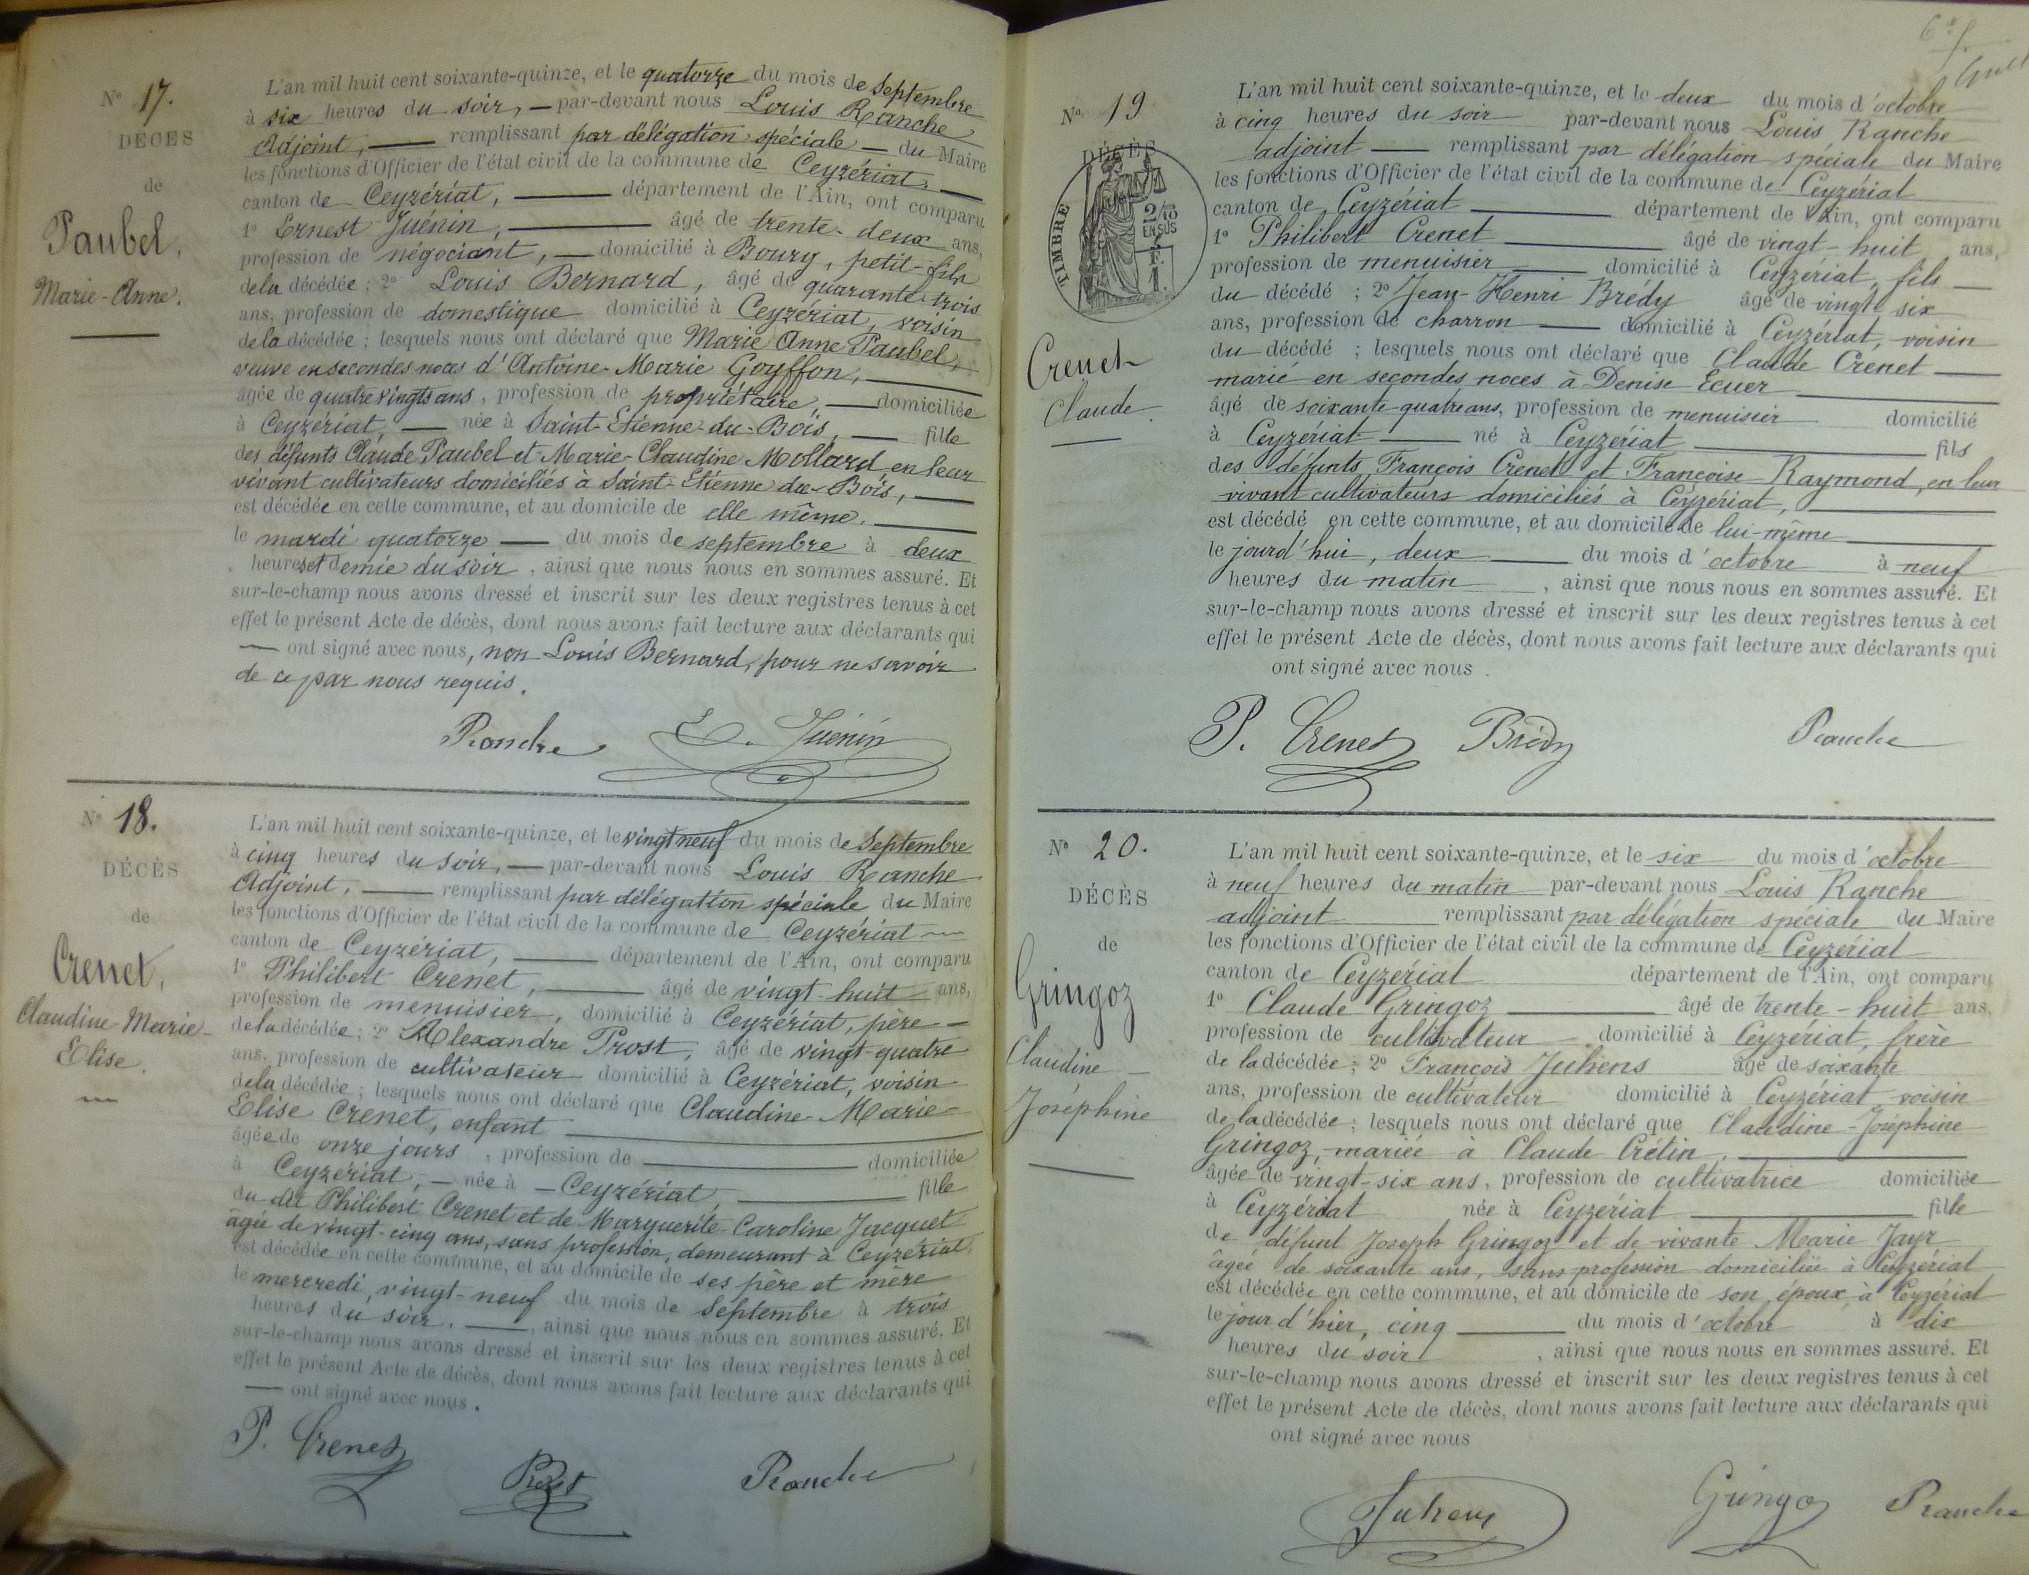 N° 17.
DÉCÈS
de
Paubel,
Marie-Anne.
L'an mil huit cent soixante-quinze, et le quatorze du mois de Septembre
à six heures du soir, — par-devant nous Louis Ranche
Adjoint, — remplissant par délégation spéciale — du Maire
les fonctions d'Officier de l'état civil de la commune de Ceyzériat, —
canton de Ceyzériat, — département de l'Ain, ont comparu
1° Ernest Juénin, — âgé de trente-deux ans,
profession de négociant, — domicilié à Bourg, petit-fils
de la décédée ; 2° Louis Bernard, âgé de quarante-trois
ans, profession de domestique domicilié à Ceyzériat, voisin
de la décédée ; lesquels nous ont déclaré que Marie Anne Paubel,
veuve en secondes noces d'Antoine-Marie Goyffon, —
âgée de quatre vingts ans, profession de propriétaire, — domiciliée
à Ceyzériat, — née à Saint-Etienne-du-Bois, — fille
des défunts Claude Paubel et Marie-Claudine Mollard en leur
vivant cultivateurs domiciliés à Saint-Etienne du-Bois, —
est décédée en cette commune, et au domicile de elle même. —
le mardi quatorze — du mois de septembre à deux
heures et demie du soir, ainsi que nous nous en sommes assuré. Et
sur-le-champ nous avons dressé et inscrit sur les deux registres tenus à cet
effet le présent Acte de décès, dont nous avons fait lecture aux déclarants qui
— ont signé avec nous, non Louis Bernard, pour ne savoir
de ce par nous requis.
Ranche E. Juénin
N° 18.
DÉCÈS
de
Crenet,
Claudine-Marie-
Elise.
L'an mil huit cent soixante-quinze, et le vingt neuf du mois de Septembre
à cinq heures du soir, — par-devant nous Louis Ranche
Adjoint, — remplissant par délégation spéciale du Maire
les fonctions d'Officier de l'état civil de la commune de Ceyzériat —
canton de Ceyzériat, — département de l'Ain, ont comparu
1° Philibert Crenet, — âgé de vingt-huit ans,
profession de menuisier, domicilié à Ceyzériat, père —
de la décédée ; 2° Alexandre Prost, âgé de vingt-quatre
ans, profession de cultivateur domicilié à Ceyzériat, voisin
de la décédée ; lesquels nous ont déclaré que Claudine-Marie-
Elise Crenet, enfant —
âgée de onze jours, profession de — domiciliée
à Ceyzériat, — née à — Ceyzériat, — fille
du dit Philibert Crenet et de Marguerite-Caroline Jacquet
âgée de vingt-cinq ans, sans profession, demeurant à Ceyzériat,
est décédée en cette commune, et au domicile de ses père et mère
le mercredi, vingt-neuf du mois de Septembre à trois
heures du soir. —, ainsi que nous nous en sommes assuré. Et
sur-le-champ nous avons dressé et inscrit sur les deux registres tenus à cet
effet le présent Acte de décès, dont nous avons fait lecture aux déclarants qui
— ont signé avec nous.
P. Crenet Prost Ranche
N° 19
DÉCÈS
TIMBRE
2/10
EN SUS
Crenet
Claude.
L'an mil huit cent soixante-quinze, et le deux du mois d'octobre
à cinq heures du soir par-devant nous Louis Ranche
adjoint — remplissant par délégation spéciale du Maire
les fonctions d'Officier de l'état civil de la commune de Ceyzériat
canton de Ceyzériat — département de l'Ain, ont comparu
1° Philibert Crenet — âgé de vingt-huit ans,
profession de menuisier — domicilié à Ceyzériat, fils —
du décédé ; 2° Jean-Henri Brédy âgé de vingt six
ans, profession de charron — domicilié à Ceyzériat, voisin
du décédé ; lesquels nous ont déclaré que Claude Crenet —
marié en secondes noces à Denise Ecuer —
âgé de soixante-quatre ans, profession de menuisier domicilié
à Ceyzériat — né à Ceyzériat — fils
des défunts François Crenet et Françoise Raymond, en leur
vivant cultivateurs domiciliés à Ceyzériat, —
est décédé en cette commune, et au domicile de lui-même —
le jourd'hui, deux — du mois d'octobre à neuf
heures du matin, ainsi que nous nous en sommes assuré. Et
sur-le-champ nous avons dressé et inscrit sur les deux registres tenus à cet
effet le présent Acte de décès, dont nous avons fait lecture aux déclarants qui
ont signé avec nous.
P. Crenet Brédy Ranche
N° 20.
DÉCÈS
de
Gringoz
Claudine —
Joséphine
L'an mil huit cent soixante-quinze, et le six du mois d'octobre
à neuf heures du matin par-devant nous Louis Ranche
adjoint remplissant par délégation spéciale du Maire
les fonctions d'Officier de l'état civil de la commune de Ceyzériat
canton de Ceyzériat département de l'Ain, ont comparu
1° Claude Gringoz — âgé de trente-huit ans,
profession de cultivateur domicilié à Ceyzériat, frère
de la décédée ; 2° François Juhens âgé de soixante
ans, profession de cultivateur domicilié à Ceyzériat, voisin
de la décédée ; lesquels nous ont déclaré que Claudine-Joséphine
Gringoz, mariée à Claude Crétin, —
âgée de vingt-six ans, profession de cultivatrice domiciliée
à Ceyzériat née à Ceyzériat — fille
de défunt Joseph Gringoz et de vivante Marie Jayr
âgée de soixante ans, sans profession domiciliée à Ceyzériat
est décédée en cette commune, et au domicile de son époux à Ceyzériat
le jour d'hier, cinq — du mois d'octobre à dix
heures du soir, ainsi que nous nous en sommes assuré. Et
sur-le-champ nous avons dressé et inscrit sur les deux registres tenus à cet
effet le présent Acte de décès, dont nous avons fait lecture aux déclarants qui
ont signé avec nous
Juhens Gringoz Ranche